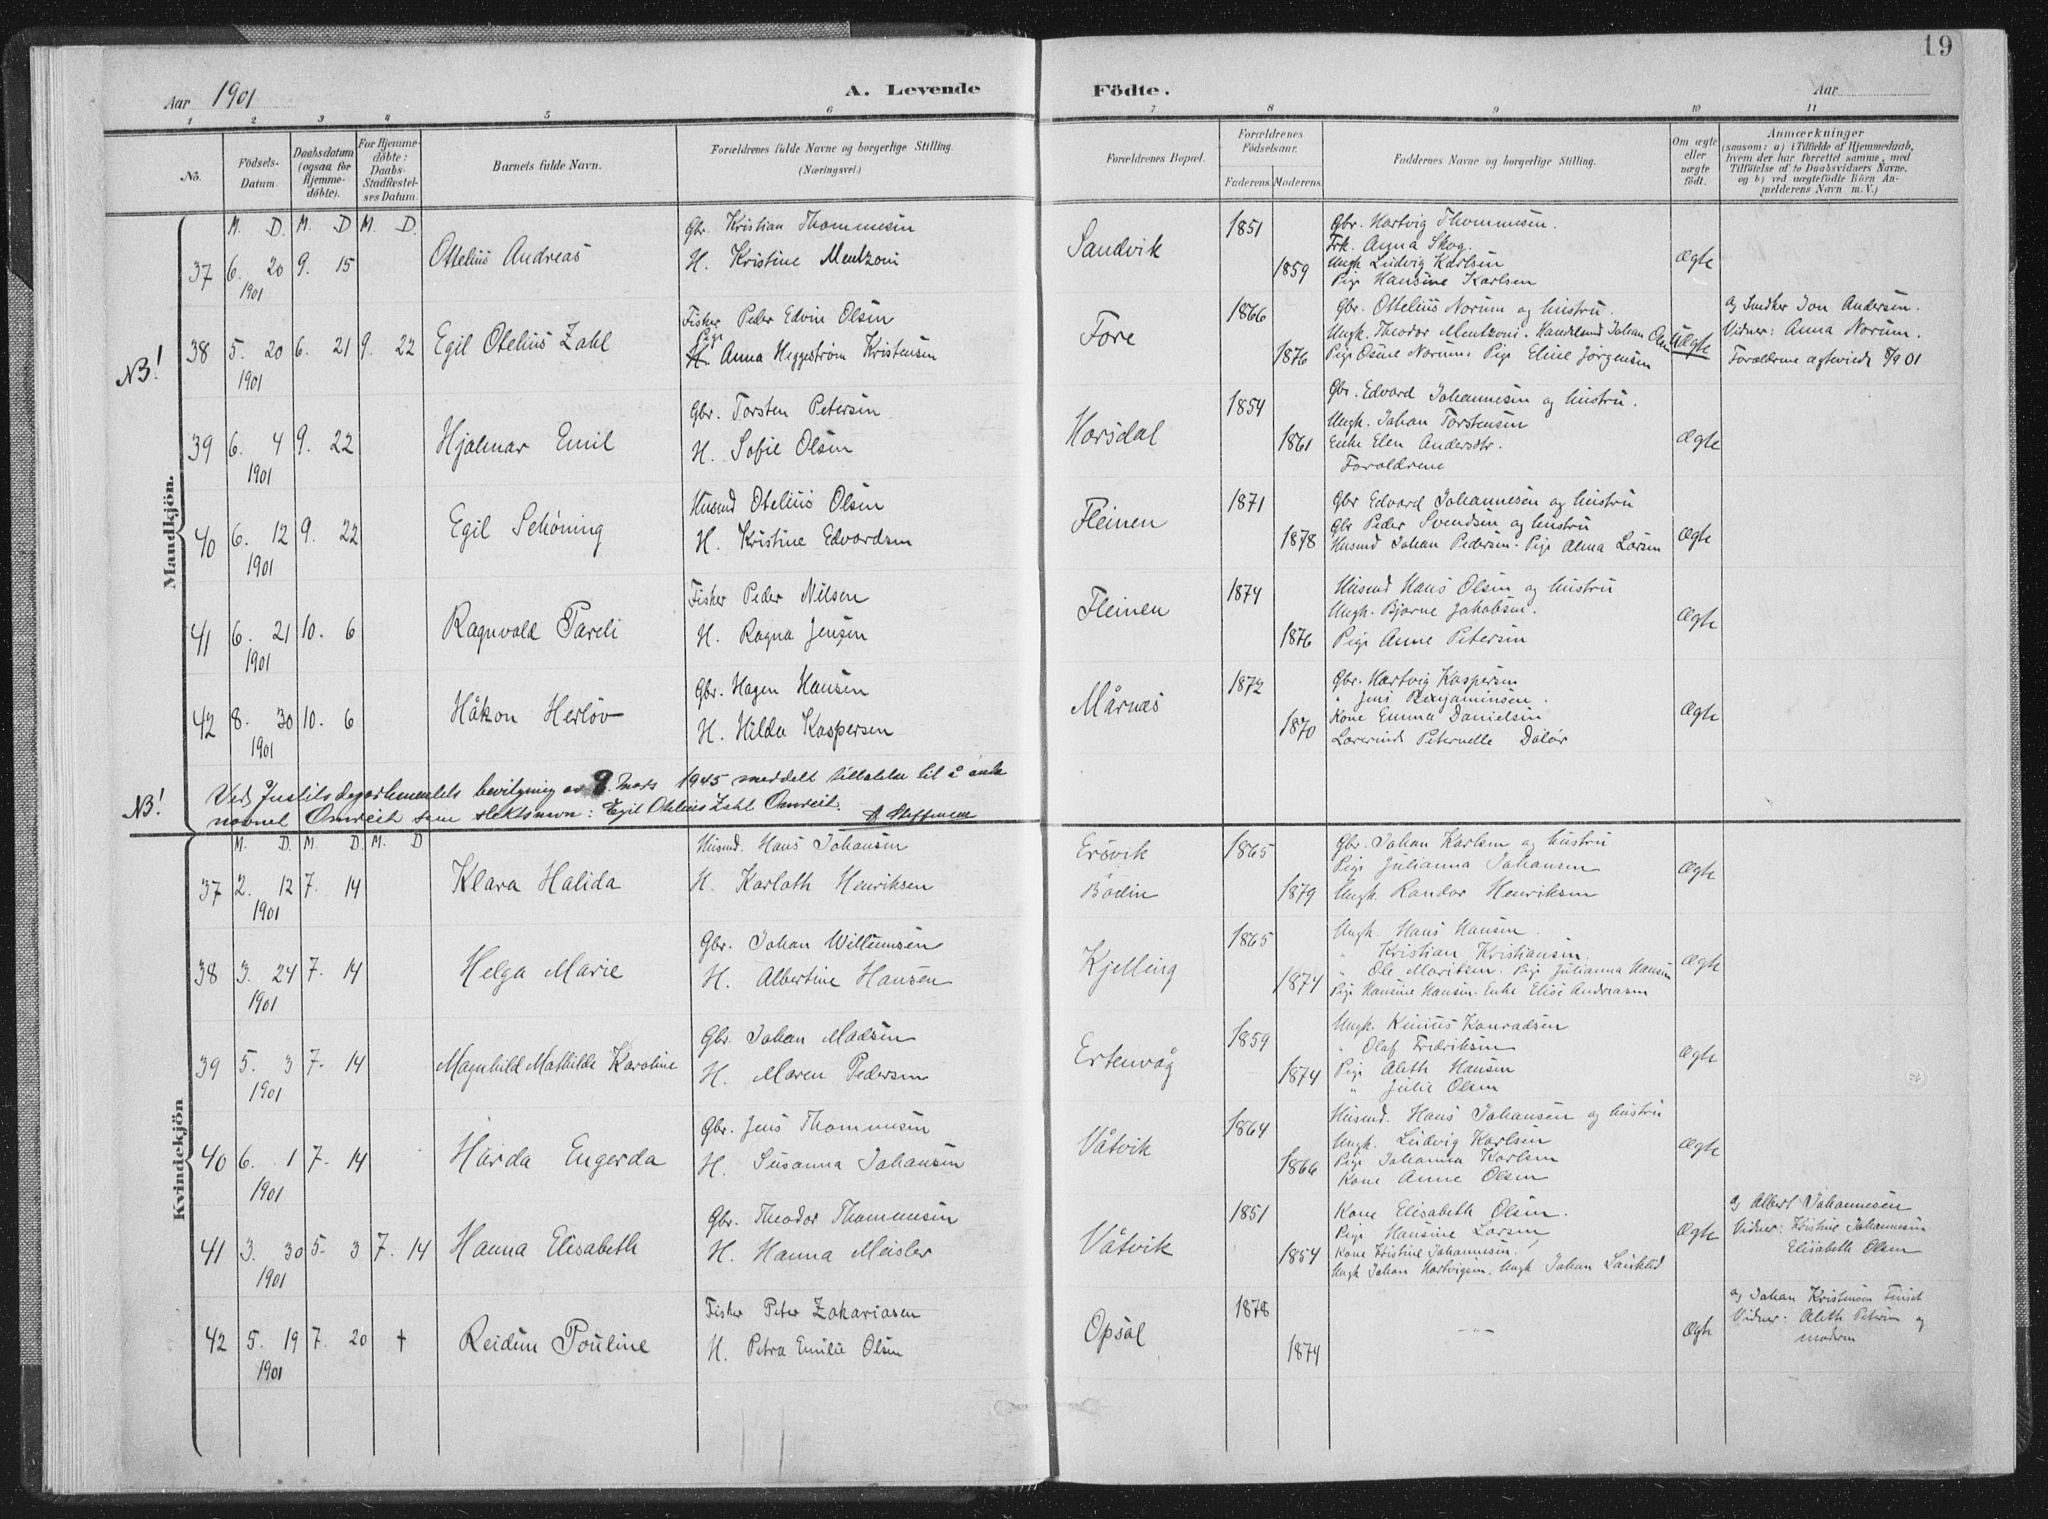 19
Aar 1901
A. Levende Födte.
Aar
1 2 3 4 5 6 7 8 9 10 11
No.
Födsels-Datum.
Daabsdatum (ogsaa for Hjemmedöbte).
For Hjemmedöbte: Daabs-Stadfæstelses Datum.
Barnets fulde Navn.
Forældrenes fulde Navne og borgerlige Stilling. (Næringsvei.)
Forældrenes Bopæl.
Forældrenes Födselsaar.
Faderens. Moderens.
Faddernes Navne og borgerlige Stilling.
Om ægte eller uægte födt.
Anmærkninger
(saasom: a) i Tilfælde af Hjemmedaab, hvem der har forrettet samme, med Tilföielse af to Daabsvidners Navne, og b) ved uægtefödte Börn Anmelderens Navn m. V.)
Mandkjön.
M. D. M. D M. D.
37 6. 20 1901 9. 15 Ottelius Andreas
Gbr. Kristian Thommesen
H. Kristine Mentzoni
Sandvik 1851 1859
Gbr. Hartvig Thommesen.
Frk. Anna Skog.
Ungk. Ludvig Karlsen
Pige Hansine Karlsen
Ægte
NB!
38 5. 20 1901 6. 21 9. 22 Egil Otelius Zahl
Fisker Peder Edvin Olsen
Pige
H. Anna Heggestrøm Kristensen
Fore 1866 1876
Gbr. Ottelius Norum og hustru.
Ungk. Theodor Mentzoni. Handelsmd Johan Olsen
Pige Osine Norum, Pige Eline Jørgensen
Uægte
a) Jon Andersen.
Vidner: Anna Norum.
Forældrene ægteviede 8/9 01
39 6. 4 1901 9. 22 Hjalmar Emil
Gbr. Torsten Petersen
H. Sofie Olsen
Horsdal 1854 1861
Gbr. Edvard Johannesen og hustru.
Ungk. Johan Torstensen
Enke Elen Andersdtr.
Forældrene
Ægte
40 6. 12 1901 9. 22 Egil Schøning
Husmd Otelius Olsen
H. Kristine Edvardsen
Fleinen 1871 1878
Gbr Edvard Johannesen og hustru
Gbr Peder Svendsen og hustru
Husmd Johan Pedersen. Pige Alma Larsen
Ægte
41 6. 21 1901 10. 6 Ragnvald Pareli
Fisker Peder Nilsen
H. Ragna Jensen
Fleinen 1874 1876
Husmd Hans Olsen og hustru
Ungk. Bjarne Jakobsen.
Pige Anne Petersen
Ægte
42 8. 30 1901 10. 6 Håkon Herløv
Gbr. Hagen Hansen
H. Hilda Kaspersen
Mårnæs 1872 1870
Gbr. Hartvig Kaspersen
" Jens Benjaminsen.
Kone Emma Danielsen
Lærerinde Peternelle Dåløv
Ægte
NB!
Ved Justitsdepartementets bevilgning av 9. mars 1945 meddelt tillatelse til å anta
navnet Omreit som slektsnavn: Egil Otelius Zahl Omreit.
Kvindekjön
M. D. M. D. M. D
37 2. 12 1901 7. 14 Klara Halida
Husmd. Hans Johansen
H. Karloth Henriksen
Ersvik i Bodin 1865 1879
Gbr. Johan Karlsen og hustru
Pige Julianna Johansen
Ungk. Randor Henriksen
Ægte
38 3. 24 1901 7. 14 Helga Marie
Gbr. Johan Willumsen
H. Albertine Hansen
Kjelling 1865 1874
Ungk. Hans Hansen.
" Kristian Kristiansen.
" Ole Moritsen. Pige Julianna Hansen
Pige Hansine Hansen. Enke Elise Andreasen
Ægte
39 5. 3 1901 7. 14 Magnhild Mathilde Karoline
Gbr. Johan Madsen
H. Maren Pedersen
Ertenvåg 1859 1874
Ungk. Kinius Konradsen
" Olaf Fredriksen
Pige Aleth Hansen
" Julie Olsen
Ægte
40 6. 1 1901 7. 14 Harda Engerda
Gbr. Jens Thommesen
H. Susanna Johansen
Våtvik 1864 1866
Husmd. Hans Johansen og hustru
Ungk. Ludvig Karlsen
Pige Johanna Karlsen
Kone Anne Olsen
Ægte
41 3. 30 1901 5. 3 7. 14 Hanna Elisabeth
Gbr. Theodor Thommesen
H. Hanna Meisler
Våtvik 1851 1854
Kone Elisabeth Olsen.
Pige Hansine Larsen
Kone Kristine Johannesen.
Ungk Johan Hartvigsen. Ungk Johan
Ægte
a) Albert Johannesen
Vidner: Kristine Johannesen
Elisabeth Olsen
42 5. 19 1901 7. 20 + Reidun Pouline
Fisker Peter Zakariasen
H. Petra Emilie Olsen
Opsal 1878 1874
— " —
Ægte
a) Johan Kristensen
Vidner: Aleth Petersen og
moderen